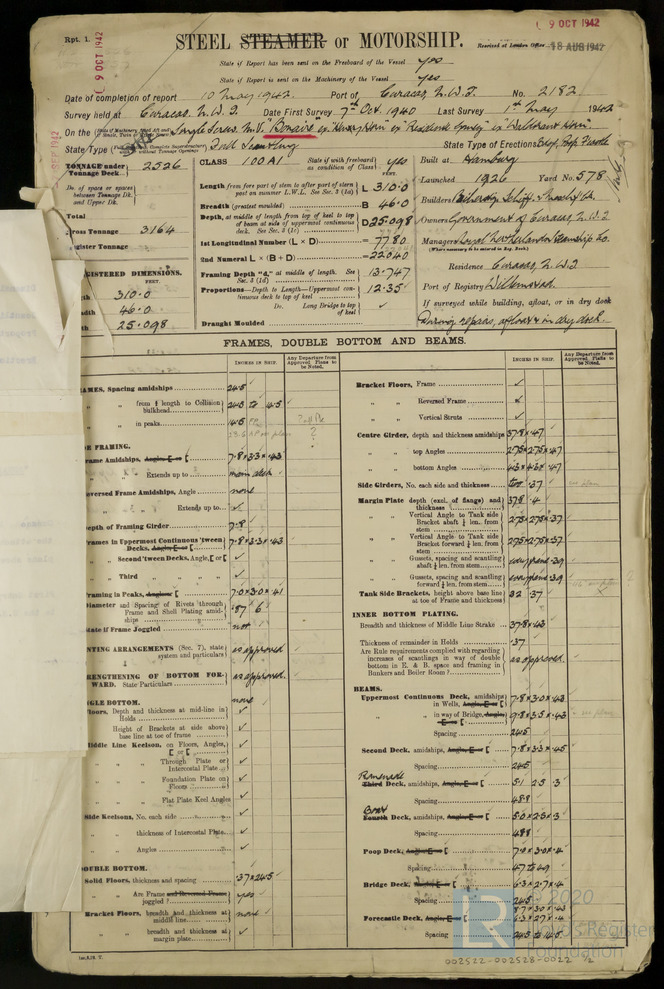 9 OCT 1942
Rpt. 1.
STEEL STEAMER or MOTORSHIP.
Received at London Office 18 AUG 1942
9 OCT 1942
State if Report has been sent on the Freeboard of the Vessel yes
State if Report is sent on the Machinery of the Vessel yes
Date of completion of report 10 May 1942. Port of Curacao, N.W.I. No. 2182
Survey held at Curacao, N.W.I. Date First Survey 7th Oct. 1940 Last Survey 1st May 1942
On the Single Screw M.V. "Bonaire" ex
State Type Full Scantling State Type of Erections
TONNAGE under Tonnage Deck 2526
Do. of space or spaces between Tonnage Dk. and Upper Dk.
Total
Gross Tonnage 3164
Register Tonnage
REGISTERED DIMENSIONS.
FEET.
310.0
46.0
25.098
CLASS 100A1 State if with freeboard as condition of Class yes
FEET.
Length from fore part of stem to after part of stern post on summer L.W.L. See Sec. 3 (1a) L 310.0
Breadth (greatest moulded) B 46.0
Depth, at middle of length from top of keel to top of beam at side of uppermost continuous deck. See Sec. 3 (1c) D 25.098
1st Longitudinal Number (L × D) = 7780
2nd Numeral L × (B + D) = 22040
Framing Depth "d," at middle of length. See Sec. 3 (1d) 13.747
Proportions—Depth to Length—Uppermost continuous deck to top of keel 12.35
Do. Long Bridge to top of keel
Draught Moulded
Built at Hamburg
Launched 1926 Yard No. 578
Builders
Owners Government of Curacao, N.W.I
Managers Royal Netherlands Steamship Co.
(Where necessary to be entered in Reg. Book)
Residence Curacao, N.W.I
Port of Registry Willemstad.
If surveyed while building, afloat, or in dry dock
During repairs, afloat & in dry dock.
FRAMES, DOUBLE BOTTOM AND BEAMS.
INCHES IN SHIP.
Any Departure from Approved Plans to be Noted.
INCHES IN SHIP.
Any Departure from Approved Plans to be Noted.
FRAMES, Spacing amidships 24.5
" " from ⅕ length to Collision bulkhead
" " in peaks
SIDE FRAMING.
Frame Amidships, Angle, E or [ 7.8×3.3×.43
" " Extends up to main deck
Reversed Frame Amidships, Angle none
" " Extends up to
Depth of Framing Girder 7.8
Frames in Uppermost Continuous 'tween Decks, Angle, E or [ 7.8×3.3×.43
" Second 'tween Decks, Angle, [ or [
" Third " "
Framing in Peaks, Angle or [ 7.0×3.0×.41
Diameter and Spacing of Rivets through Frame and Shell Plating amidships .87 6
State if Frame Joggled not
PANTING ARRANGEMENTS (Sec. 7), state system and particulars as approved
STRENGTHENING OF BOTTOM FORWARD. State Particulars as approved
SINGLE BOTTOM. none
Floors, Depth and thickness at mid-line in Holds
" Height of Brackets at side above base line at toe of frame
Middle Line Keelson, on Floors, Angles, [ or [
" " Through Plate or Intercostal Plate
" " Foundation Plate on Floors
" " Flat Plate Keel Angles
Side Keelsons, No. each side
" " thickness of Intercostal Plate
" " Angles
DOUBLE BOTTOM.
Solid Floors, thickness and spacing .37×24.5
" " Are Frame and Reversed Frame joggled? yes
Bracket Floors, breadth and thickness at middle line none
" " breadth and thickness at margin plate
Bracket Floors, Frame
" " Reversed Frame
" " Vertical Struts
Centre Girder, depth and thickness amidships 37.8×.47
" " top Angles 2.75×2.75×.47
" " bottom Angles
Side Girders, No. each side and thickness two .37
Margin Plate depth (excl. of flange) and thickness 37.8 .4
" " Vertical Angle to Tank side Bracket abaft ¼ len. from stem 2.75×2.75×.37
" " Vertical Angle to Tank side Bracket forward ¼ len. from stem 2.75×2.75×.37
" " Gussets, spacing and scantling abaft ¼ len. from stem .39
" " Gussets, spacing and scantling forward ¼ len. from stem .39
Tank Side Brackets, height above base line at toe of Frame and thickness 32 .37
INNER BOTTOM PLATING.
Breadth and thickness of Middle Line Strake 37.8×.43
Thickness of remainder in Holds .37
Are Rule requirements complied with regarding increases of scantlings in way of double bottom in E. & B. space and framing in Bunkers and Boiler Room? as approved.
BEAMS.
Uppermost Continuous Deck, amidships in Wells, Angle, E or [ 7.8×3.0×.43
" " in way of Bridge, Angle, E or [ 9.8×3.5×.43
Spacing 24.5
Second Deck, amidships, Angle, E or [ 7.8×3.3×.45
Spacing 24.5
Promenade
Third Deck, amidships, Angle, E or [ 5.1 2.5 .3
Spacing 48.8
Boat
Fourth Deck, amidships, Angle, E or [ 5.0×2.3×.3
Spacing 48.8
Poop Deck, Angle, E or [ 7.0×3.0×.4
Spacing
Bridge Deck, Angle, E or [ 6.3×2.7×.4
Spacing 24.5
Forecastle Deck, Angle, E or [
Spacing
© 2020
Lloyd's Register
Foundation
LR
002522-002528-0022 ½